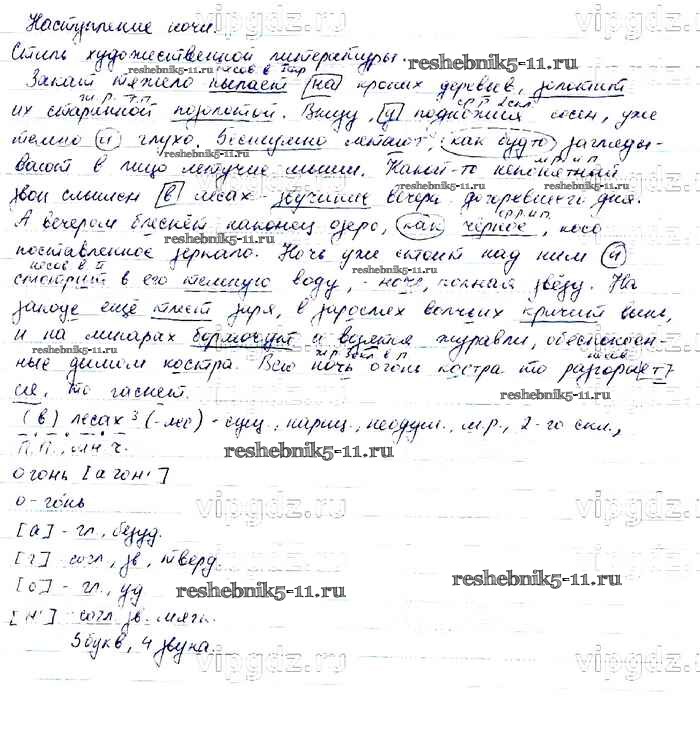 Наступление ночи.
Стиль художественной литературы.
Закат тяжело пылает [на] кронах деревьев, золотит
их старинной позолотой. Внизу, [у] подножия сосен, уже
темно и глухо. Бесшумно летают, как будто загляды-
вают в лицо летучие мыши. Какой-то непонятный
звон слышен [в] лесах - звучание вечера, догоревшего дня.
А вечером блеснёт наконец озеро, как чёрное, косо
поставленное зеркало. Ночь уже стоит над ним и
смотрит в его темную воду, - ночь, полная звёзд. На
западе ещё тлеет заря, в зарослях волчьих кричит выпь,
и на мшарах бормочут и возятся журавли, обеспокоен-
ные дымом костра. Всю ночь огонь костра то разгорает-
ся, то гаснет.
(В) лесах³ (-лес) - сущ., нариц., неодуш., м.р., 2-го скл.,
П.п., мн.ч.
Огонь [агон']
о-гонь
[а] - гл., безуд.
[г] - согл., зв., тверд.
[о] - гл., уд
[н'] - согл. зв. мягк.
5 букв, 4 звука.
reshebnik5-11.ru
vipgdz.ru